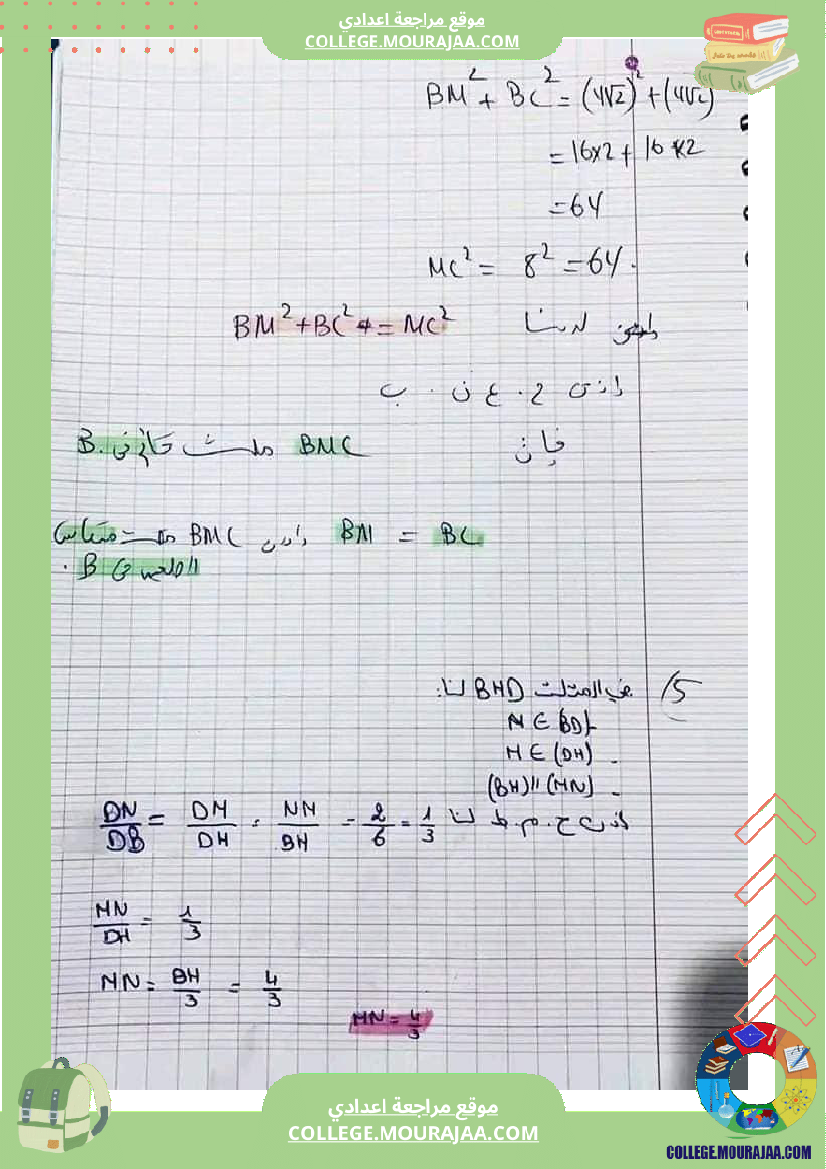 موقع مراجعة اعدادي
COLLEGE.MOURAJAA.COM
BM² + BC² = (4√2)² + (4√2)
= 16×2 + 16×2
= 64
MC² = 8² = 64.
لدينا BM² + BC² = MC²
ح . ع . ف . ب
فإن BMC مثلث قائم في B.
BM = BC إذن BMC مثلث متساوي
الساقين في B.
5/ في المثلث BHD لنا:
N ∈ (BD)
M ∈ (DH) -
(BH)//(MN) -
إذن ح. م. ط لنا DN/DB = DM/DH = NM/BH = 2/6 = 1/3
MN/DH = 1/3
MN = BH/3 = 4/3
MN = 4/3
موقع مراجعة اعدادي
COLLEGE.MOURAJAA.COM
COLLEGE.MOURAJAA.COM